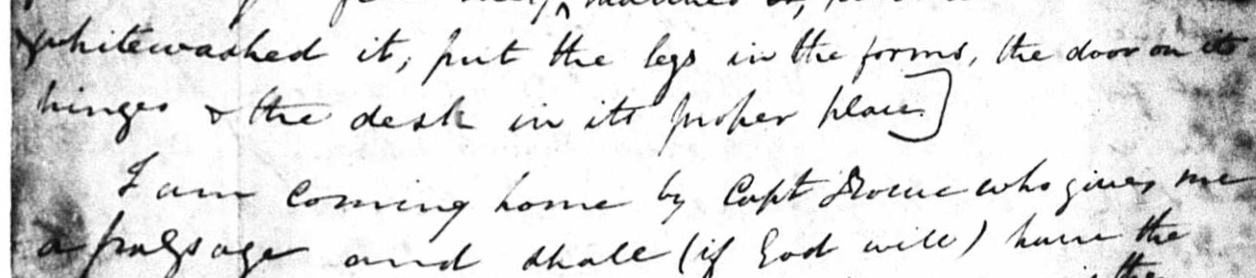 whitewashed it, put the legs in the forms, the door on its
hinges & the desk in its proper place]
I am coming home by Capt who gives me
a passage and shall (if God will) have the
the